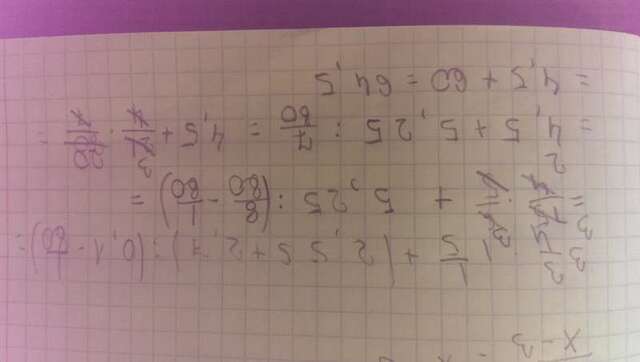 x-3
3 3/4 · 1 1/5 + (2,55+2,7) : (0,1 - 1/80) =
= 15/4 · 6/5 + 5,25 : (8/80 - 1/80) =
= 4,5 + 5,25 : 7/80 = 4,5 + 21/4 · 80/7 =
= 4,5 + 60 = 64,5